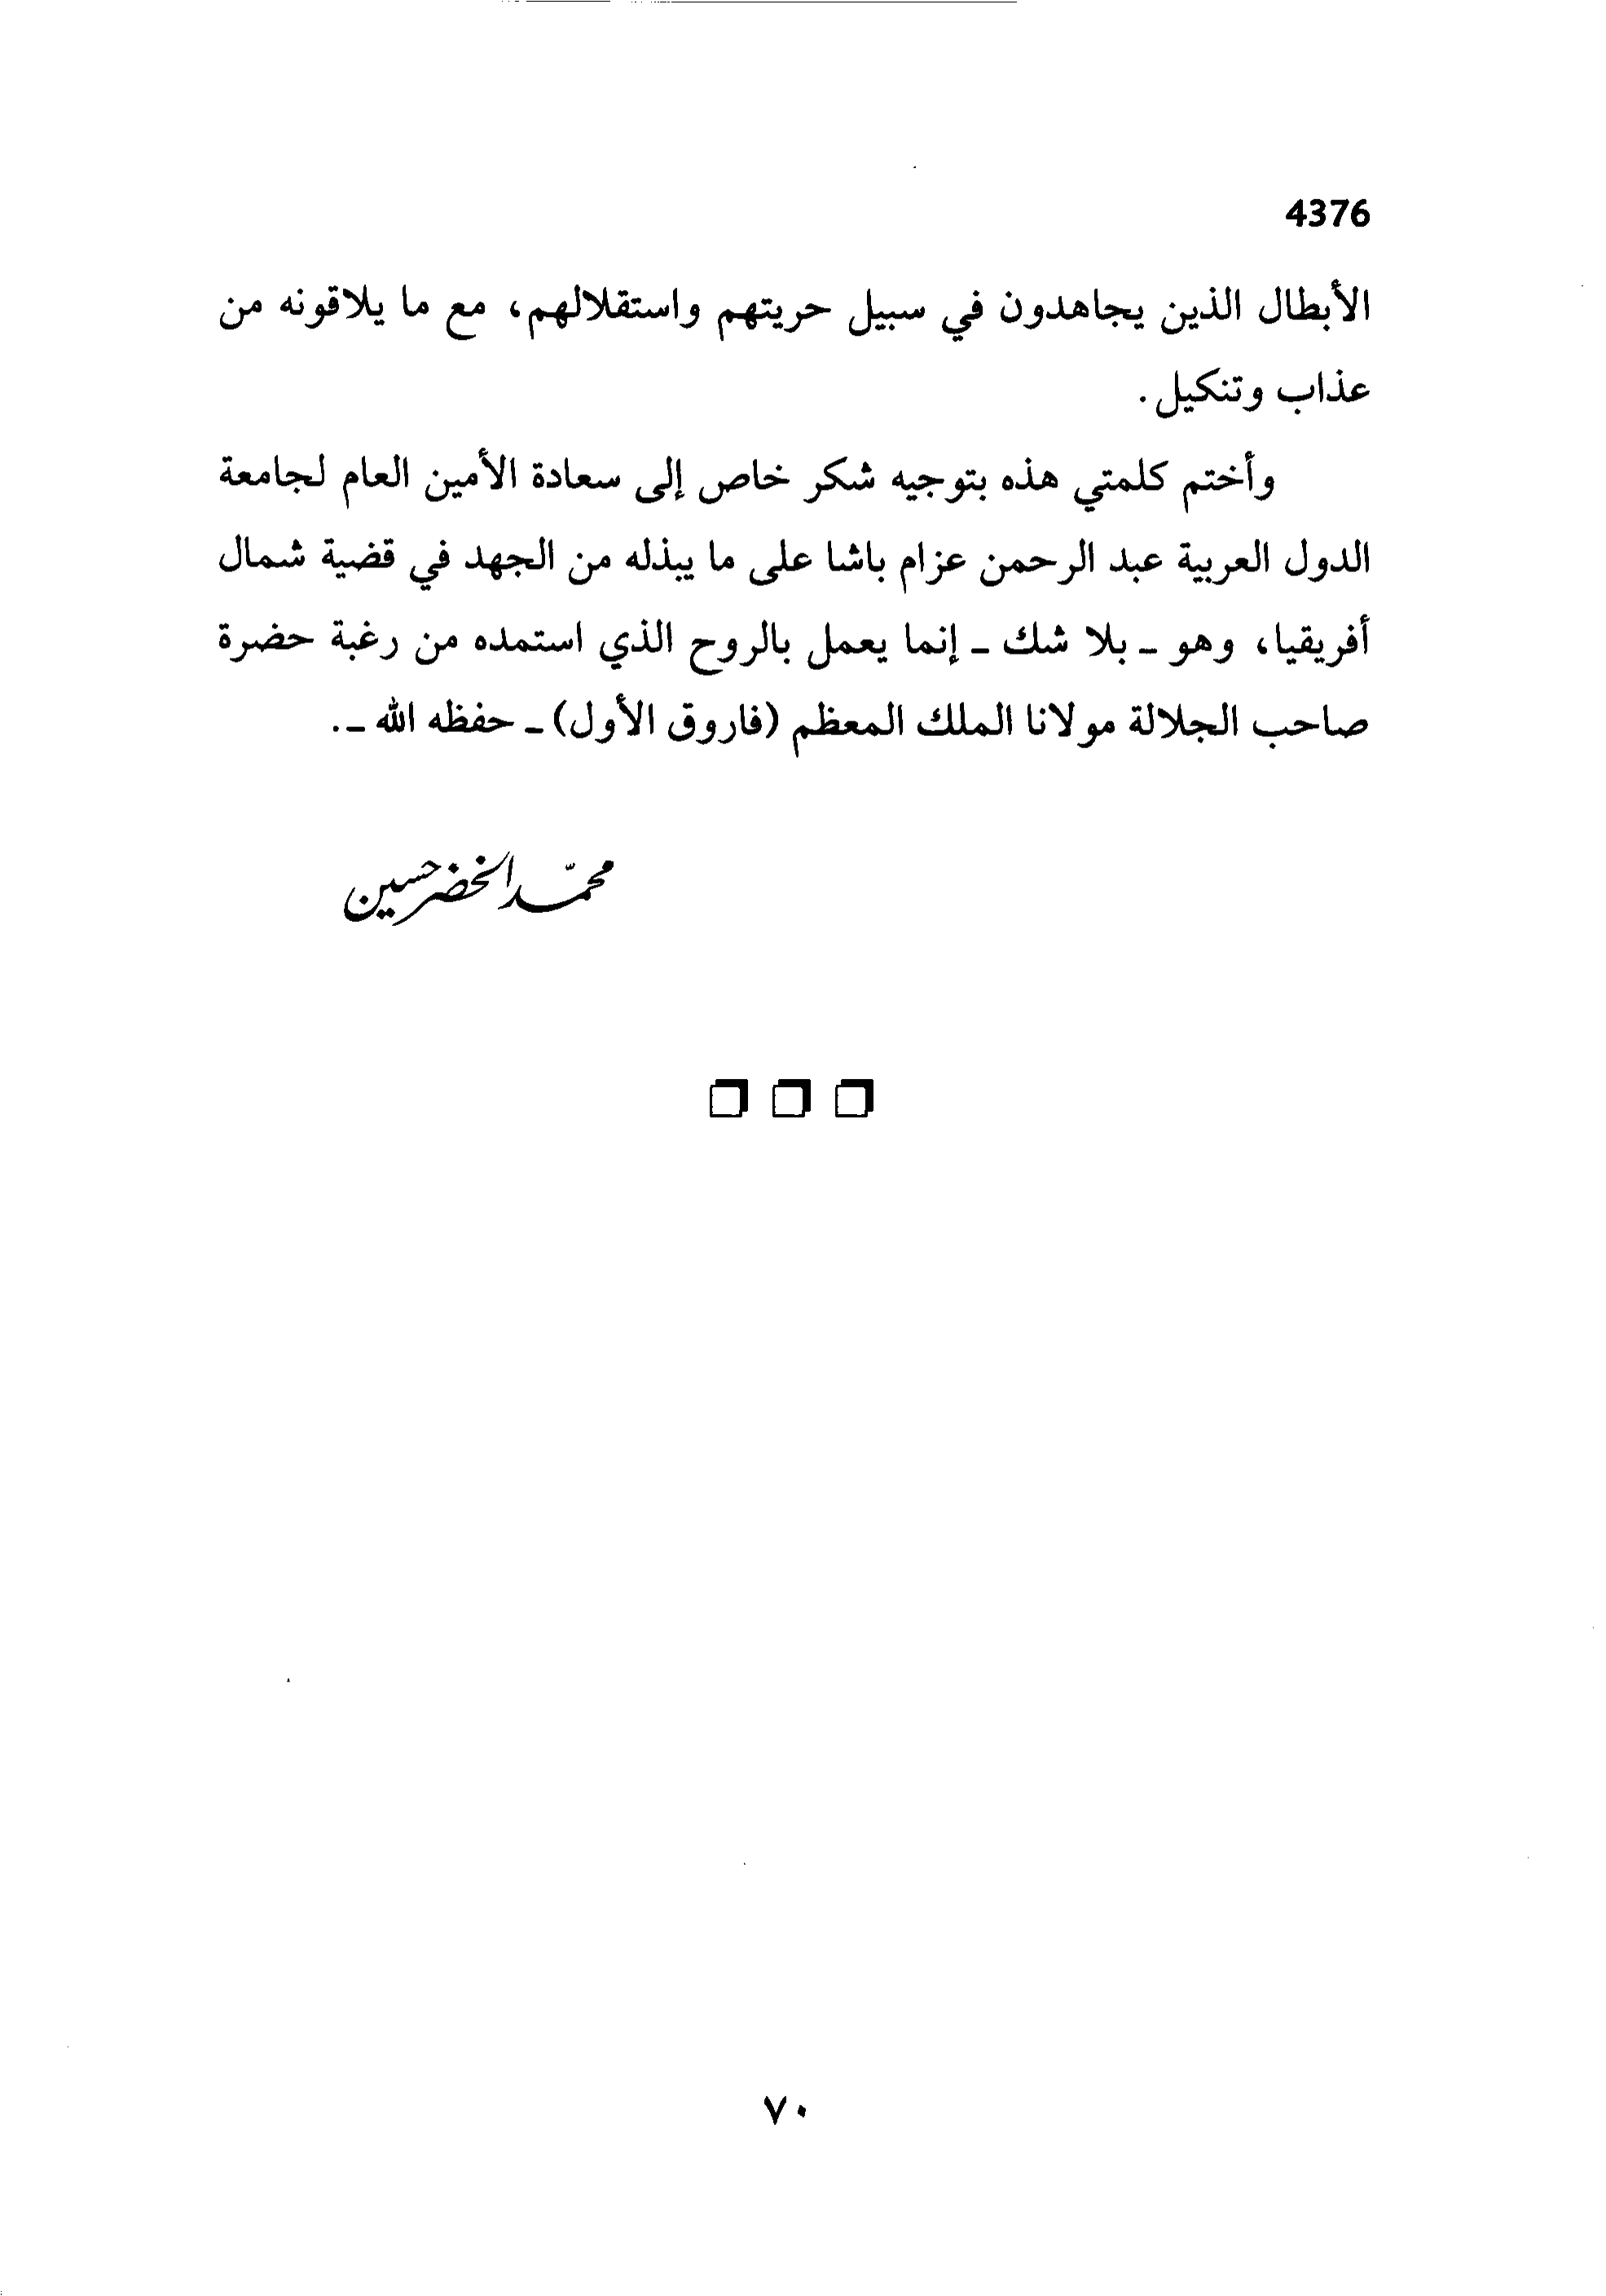 4376
الأبطال الذين يجاهدون في سبيل حريتهم واستقلالهم، مع ما يلاقونه من
عذاب وتنكيل.
وأختم كلمتي هذه بتوجيه شكر خاص إلى سعادة الأمين العام لجامعة
الدول العربية عبد الرحمن عزام باشا على ما يبذله من الجهد في قضية شمال
أفريقيا، وهو ـ بلا شك ـ إنما يعمل بالروح الذي استمده من رغبة حضرة
صاحب الجلالة مولانا الملك المعظم (فاروق الأول) ـ حفظه الله ـ.
محمّد الخضر حسين
٧٠